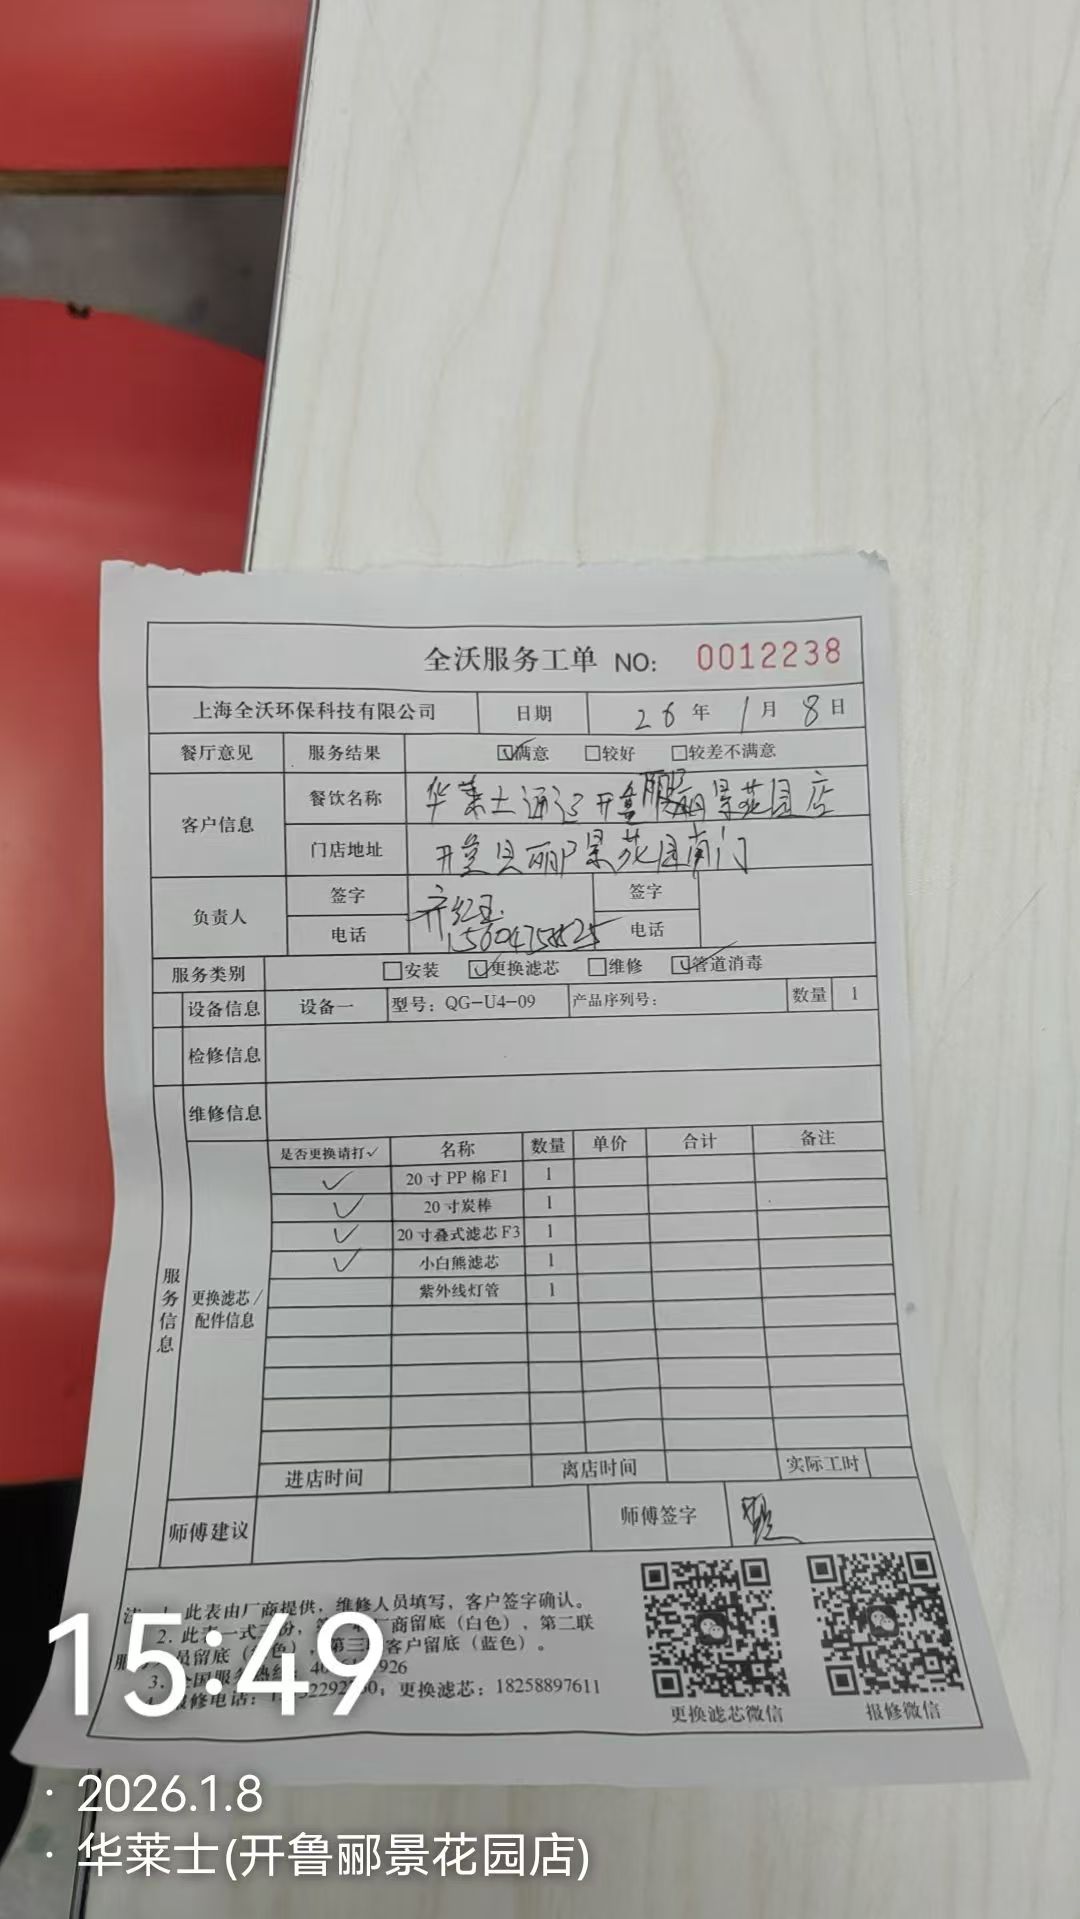 全沃服务工单 NO: 0012238
上海全沃环保科技有限公司 日期 26 年 1 月 8 日
餐厅意见 服务结果 ☑满意 □较好 □较差不满意
客户信息 餐饮名称 华莱士通辽开鲁郦景花园店
门店地址 开鲁县丽景花园南门
负责人 签字 齐红玉 签字
电话 电话
服务类别 □安装 ☑更换滤芯 □维修 ☑管道消毒
设备信息 设备一 型号: QG-U4-09 产品序列号: 数量 1
检修信息
维修信息
服务信息
更换滤芯/配件信息
是否更换请打✓ 名称 数量 单价 合计 备注
✓ 20寸PP棉F1 1
✓ 20寸炭棒 1
✓ 20寸叠式滤芯F3 1
✓ 小白熊滤芯 1
紫外线灯管 1
进店时间 离店时间 实际工时
师傅建议 师傅签字
1. 此表由厂商提供，维修人员填写，客户签字确认。
2. 此表一式三份，厂商留底（白色），第二联
员留底 色），第三 客户留底（蓝色）。
3. 全国服务热线: 926
修电话: ；更换滤芯：18258897611
更换滤芯微信 报修微信
15:49
· 2026.1.8
· 华莱士(开鲁郦景花园店)